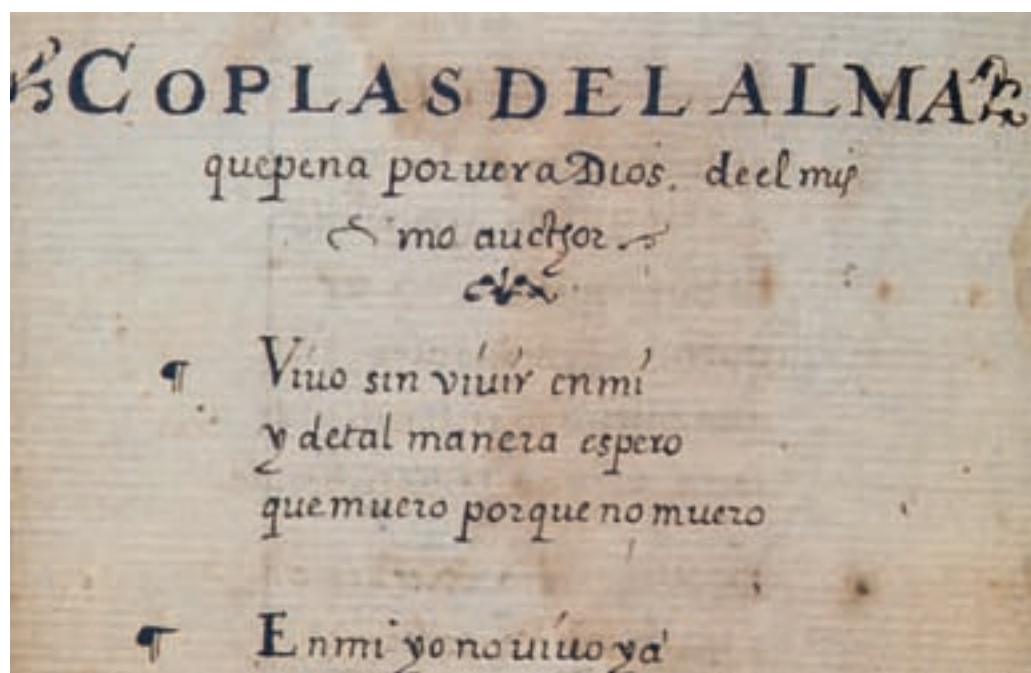 COPLAS DEL ALMA
que pena por uer a Dios. de el mis
mo aucthor
¶ Viuo sin viuir en mi
y de tal manera espero
que muero porque no muero
¶ En mi yo no uiuo ya